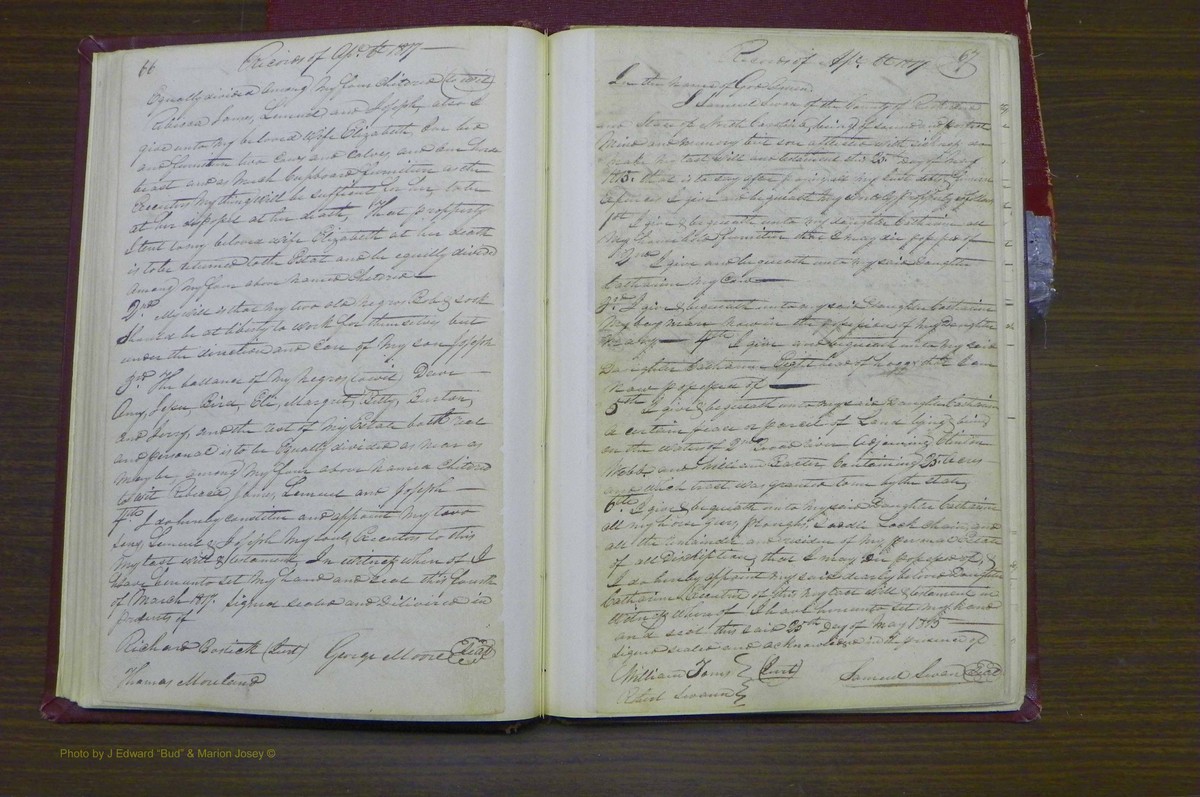 66 Records of Apl. Ct. 1817
Equally divided among my four Children (to wit)
Rebecca James, Lemuel and Joseph, also I
give unto my beloved wife Elizabeth, One bed
and furniture two Cows and Calves, and one horse
beast and as much Cupboard furniture as the
Executors my thing will be sufficient for her to be
at her disposel at her death, That propperty
I lent to my beloved wife Elizabeth at her death
is to be returned to the Estat and be equilly divided
among my four above named Children
2nd. My will is that my two old negros Bob &
Should be at liberty to work for themselves but
under the direction and Care of my son Joseph
3rd. The ballance of my negros (towit) Dave
Amy, Bird, Eli, Margret, Burton,
and Jerry, and the rest of my Estate both real
and personal is to be Equally divided as near as
may be among my four above named Children
to wit Rebecca James, Lemuel and Joseph
4th I do hereby constitute and appoint my two
sons, Lemuel & Joseph my Executors to this
my last will & testament, In witness when of I
have hereunto set my hand and seal this
of March 1817. Signed sealed and Delivered in
presents of
Richard Bostick (Jurt) George Moore (Seal)
Thomas Moreland
Records of Apl. Ct. 1817 67
In the name of God Amen
I Samuel Swan of the County of
and State of North Carolina, being of sound and perfect
Mind and memory but sore afflicted with sickness do
make my last Will and testament this 23d day of May
1815. that is to say after paying all my Just debts & funeral
Expences I give and bequeath my worldly property as follows
1st I give & bequeath unto my daughter Catharine all
my household furniture that I may die possessed of
2nd I give and bequeath unto my said Daughter
Catharine my Corn
3rd. I give & bequeath unto my said Daughter Catharine
my bay mare now in the possession of my Daughter
4th I give and bequeath unto my said
Daughter Catharine head of hogs that I am
now possessed of
5th I give & bequeath unto my said Daughter Catharine
a certain piece or parcel of Land lying & being
on the waters of 2nd Broad River Adjoining
Webb and William containing acres
and which tract was granted to me by the State
6th I give & bequeath unto my said Daughter Catharine
all my horse gears, ploughs, chain, and
all the remainder and residue of my personal Estate
of all Discription, that I may die possessed of, &
I do hereby appoint my said dearly beloved Daughter
Catharine Executrix of this my last will & testament in
Witness Whereof I have hereunto set my hand
and seal this said 23d Day of May 1815
Signed sealed and acknowledged in the presence of
William (Jurt) Samuel Swan (Seal)
Swann
Photo by J Edward "Bud" & Marion Josey ©